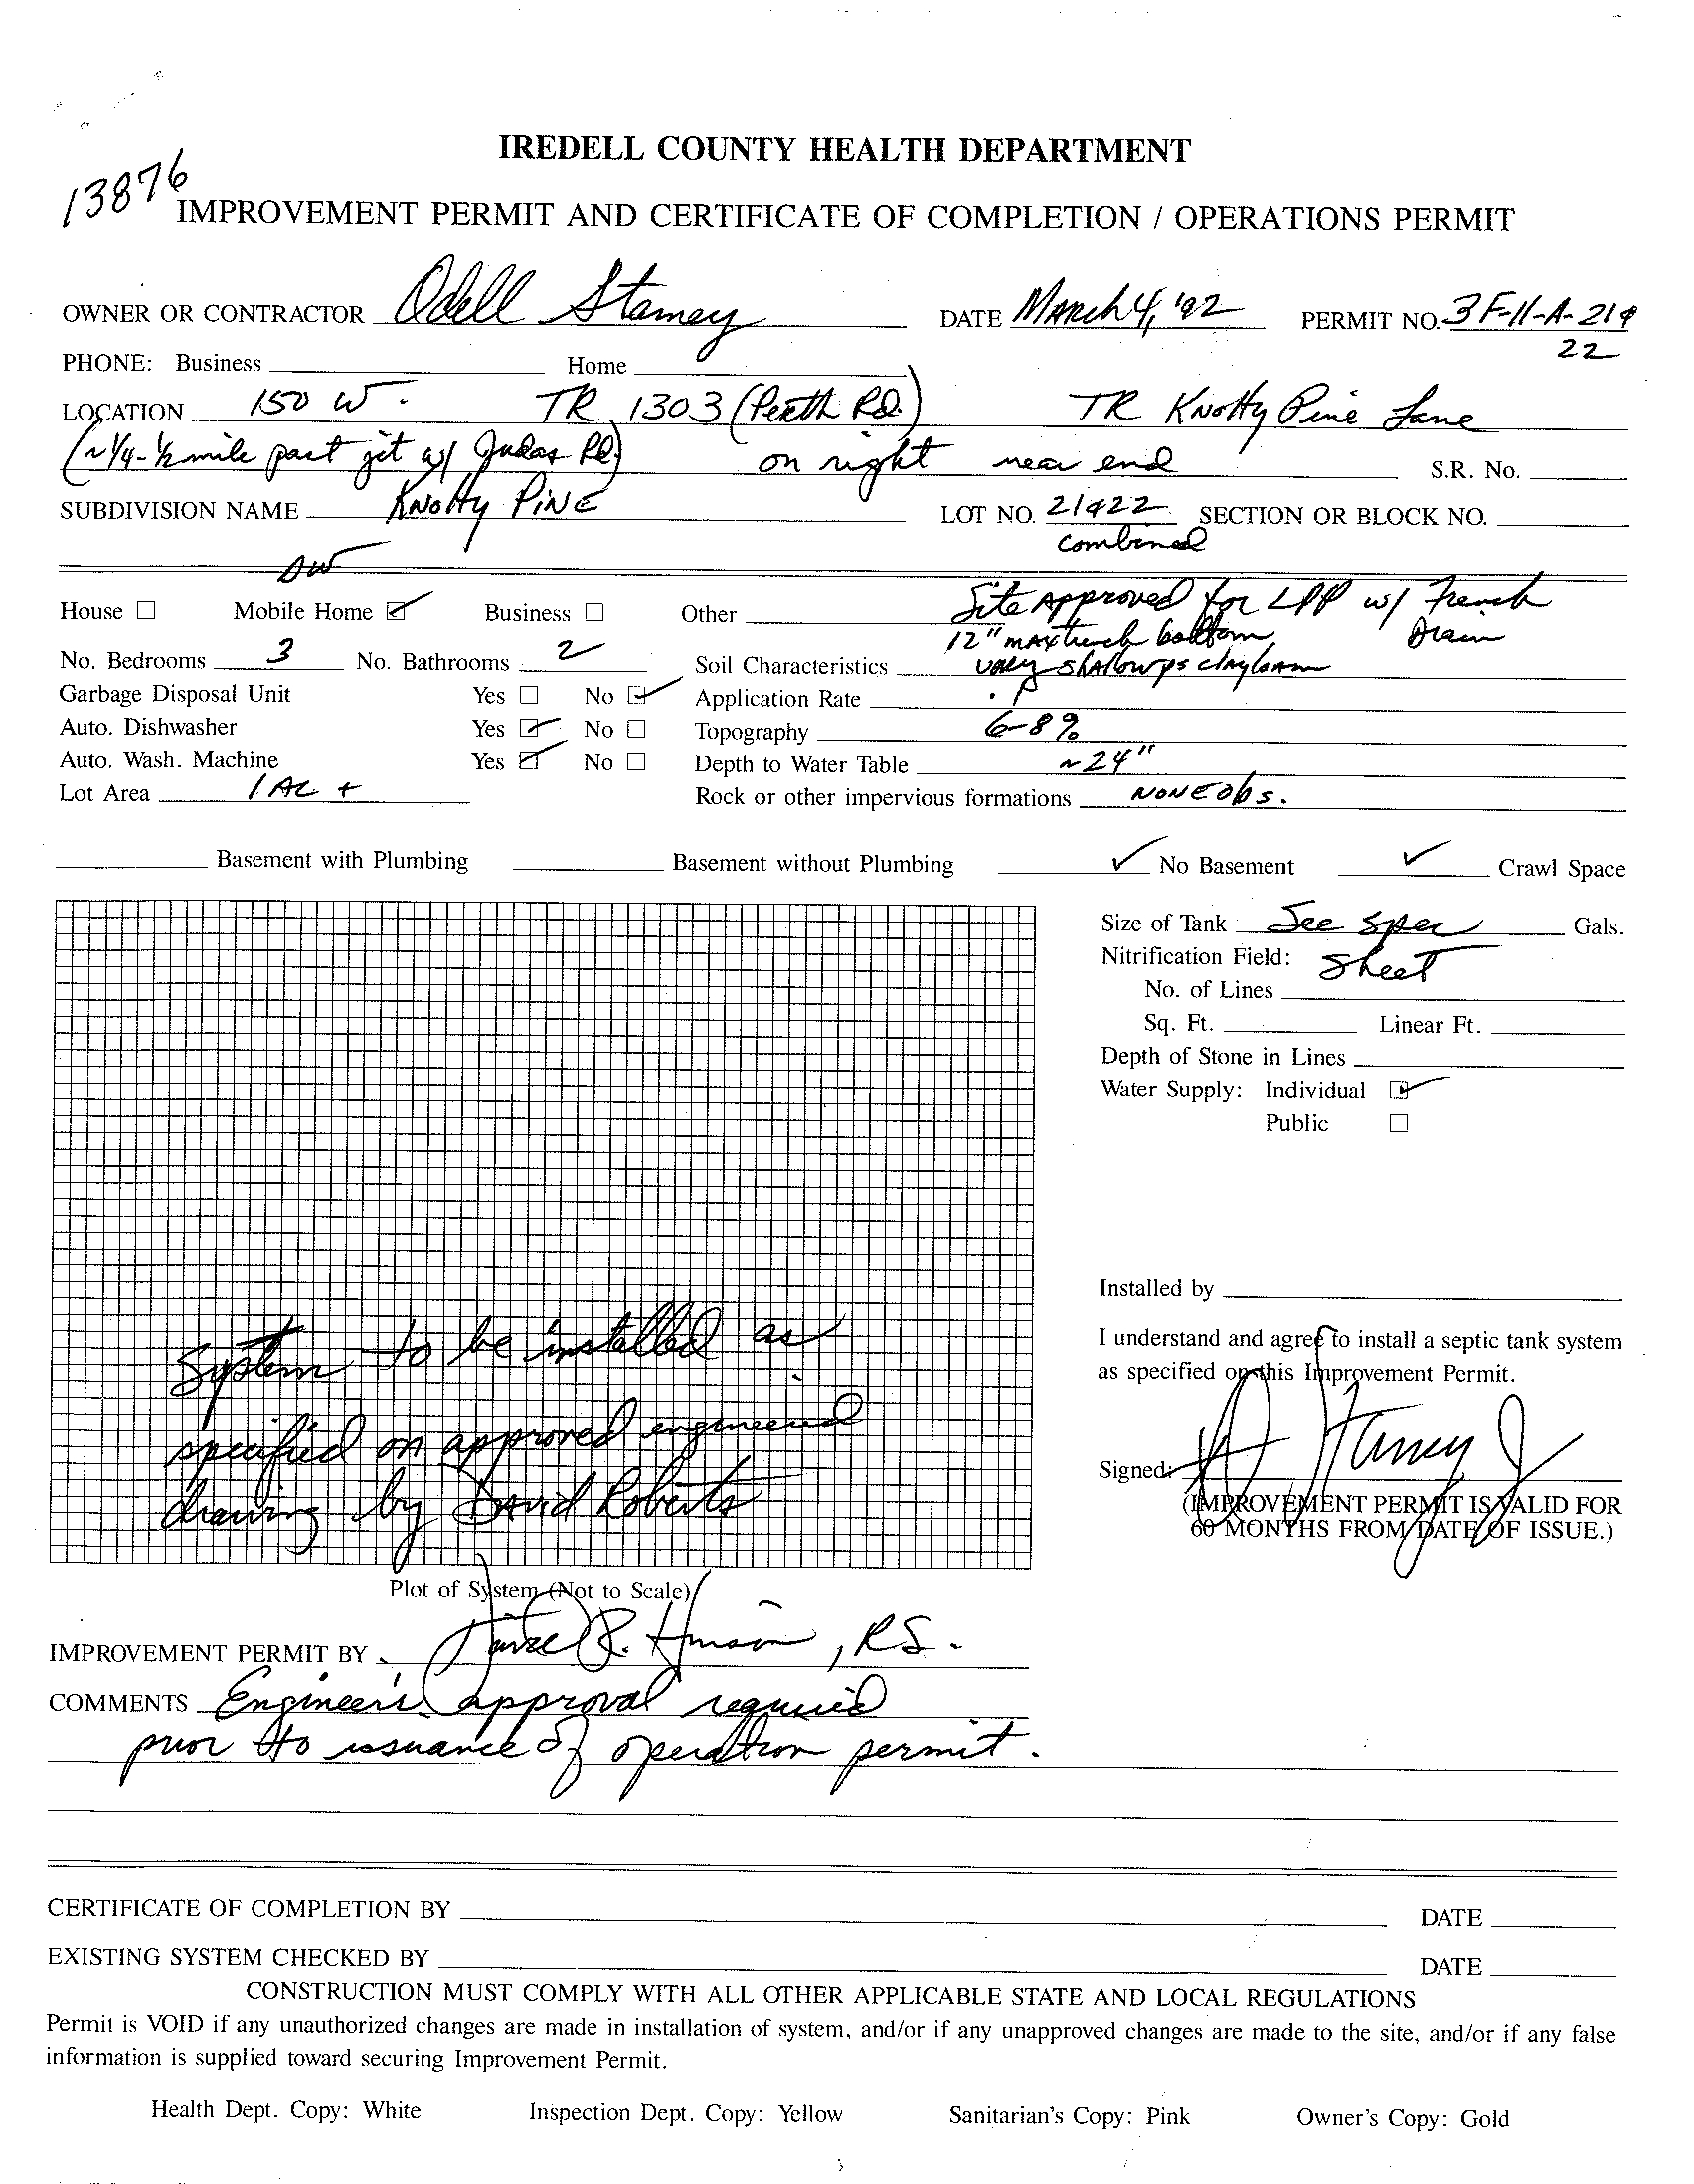 IREDELL COUNTY HEALTH DEPARTMENT
13876
IMPROVEMENT PERMIT AND CERTIFICATE OF COMPLETION / OPERATIONS PERMIT
OWNER OR CONTRACTOR Odell Stamey DATE March 4, '92 PERMIT NO. 3F-11-A-21&
22
PHONE: Business Home
LOCATION 150 W. TR 1303 (Perth Rd.) TR Knotty Pine Lane
(~1/4-1/2 mile past jct w/ Judas Rd) on right near end S.R. No.
SUBDIVISION NAME Knotty PINE LOT NO. 21&22 SECTION OR BLOCK NO.
combined
DW
House Mobile Home Business Other Site Approved for LPP w/ French
12" max trench bottom, Drain
No. Bedrooms 3 No. Bathrooms 2 Soil Characteristics very shallow ps clay loam
Garbage Disposal Unit Yes No Application Rate
Auto. Dishwasher Yes No Topography 6-8%
Auto. Wash. Machine Yes No Depth to Water Table ~24"
Lot Area 1 AC + Rock or other impervious formations NONE obs.
Basement with Plumbing Basement without Plumbing ✓ No Basement ✓ Crawl Space
Size of Tank See spec Gals.
Nitrification Field: Sheet
No. of Lines
Sq. Ft. Linear Ft.
Depth of Stone in Lines
Water Supply: Individual
Public
Installed by
I understand and agree to install a septic tank system
as specified on this Improvement Permit.
Signed: Stamey
(IMPROVEMENT PERMIT IS VALID FOR
60 MONTHS FROM DATE OF ISSUE.)
System to be installed as
specified on approved engineered
drawing by David Roberts
Plot of System (Not to Scale)
IMPROVEMENT PERMIT BY R. , RS.
COMMENTS Engineer's approval required
prior to issuance of operation permit.
CERTIFICATE OF COMPLETION BY DATE
EXISTING SYSTEM CHECKED BY DATE
CONSTRUCTION MUST COMPLY WITH ALL OTHER APPLICABLE STATE AND LOCAL REGULATIONS
Permit is VOID if any unauthorized changes are made in installation of system, and/or if any unapproved changes are made to the site, and/or if any false
information is supplied toward securing Improvement Permit.
Health Dept. Copy: White Inspection Dept. Copy: Yellow Sanitarian's Copy: Pink Owner's Copy: Gold